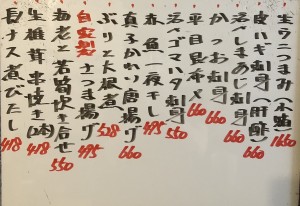 生ウニつまみ(本山) 1650
皮ハギ刺身(肝酢) 660
活〆しまあじ刺身 660
かつお刺身 660
平目昆布〆 660
活〆ゴマハタ刺身 550
赤魚一夜干し 495
真子かれい唐揚げ 660
ぶりと大根煮 528
自家製さつま揚げ 495
海老と若筍炊き合せ 550
生椎茸串焼き(2本) 418
長ナス煮びたし 418